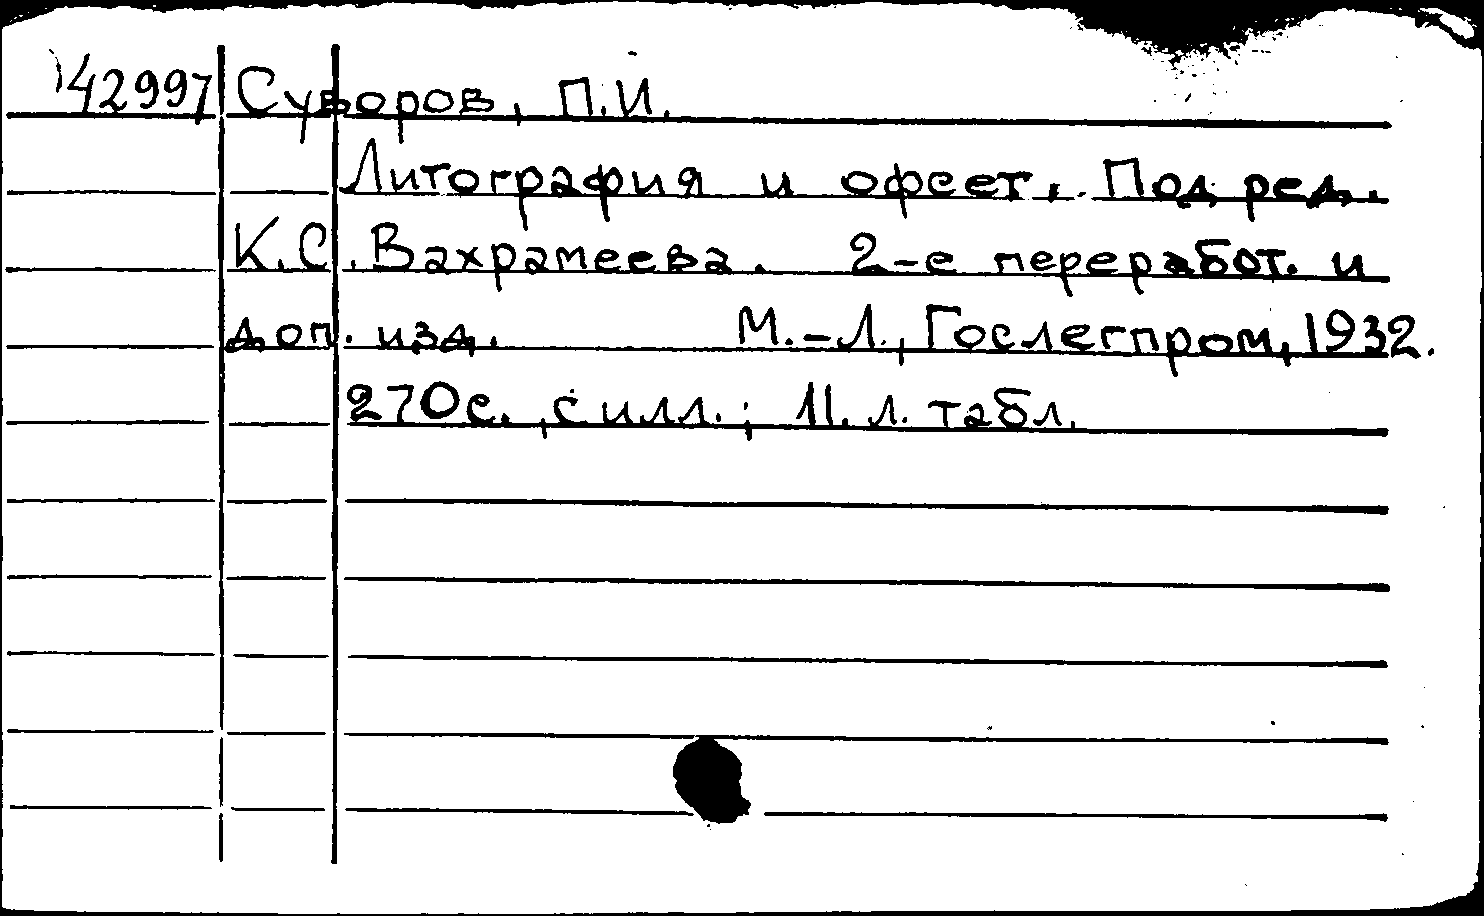 42997 Суворов, П.И.
Литография и офсет. Под ред.
К.С. Вахрамеева. 2-е переработ. и
доп. изд. М.-Л., Гослегпром, 1932.
270с., с илл.; 11. л. табл.